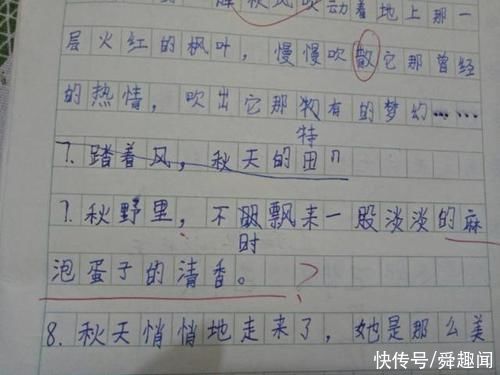 秋风吹动着地上那一
层火红的枫叶，慢慢吹散它那曾经
的热情，吹出它那独有的梦幻……
特
7.踏着风，秋天的田
7.秋野里，不时飘来一股淡淡的麻
时
泡蛋子的清香。？
8.秋天悄悄地走来了，她是那么美
快传号/舜趣闻